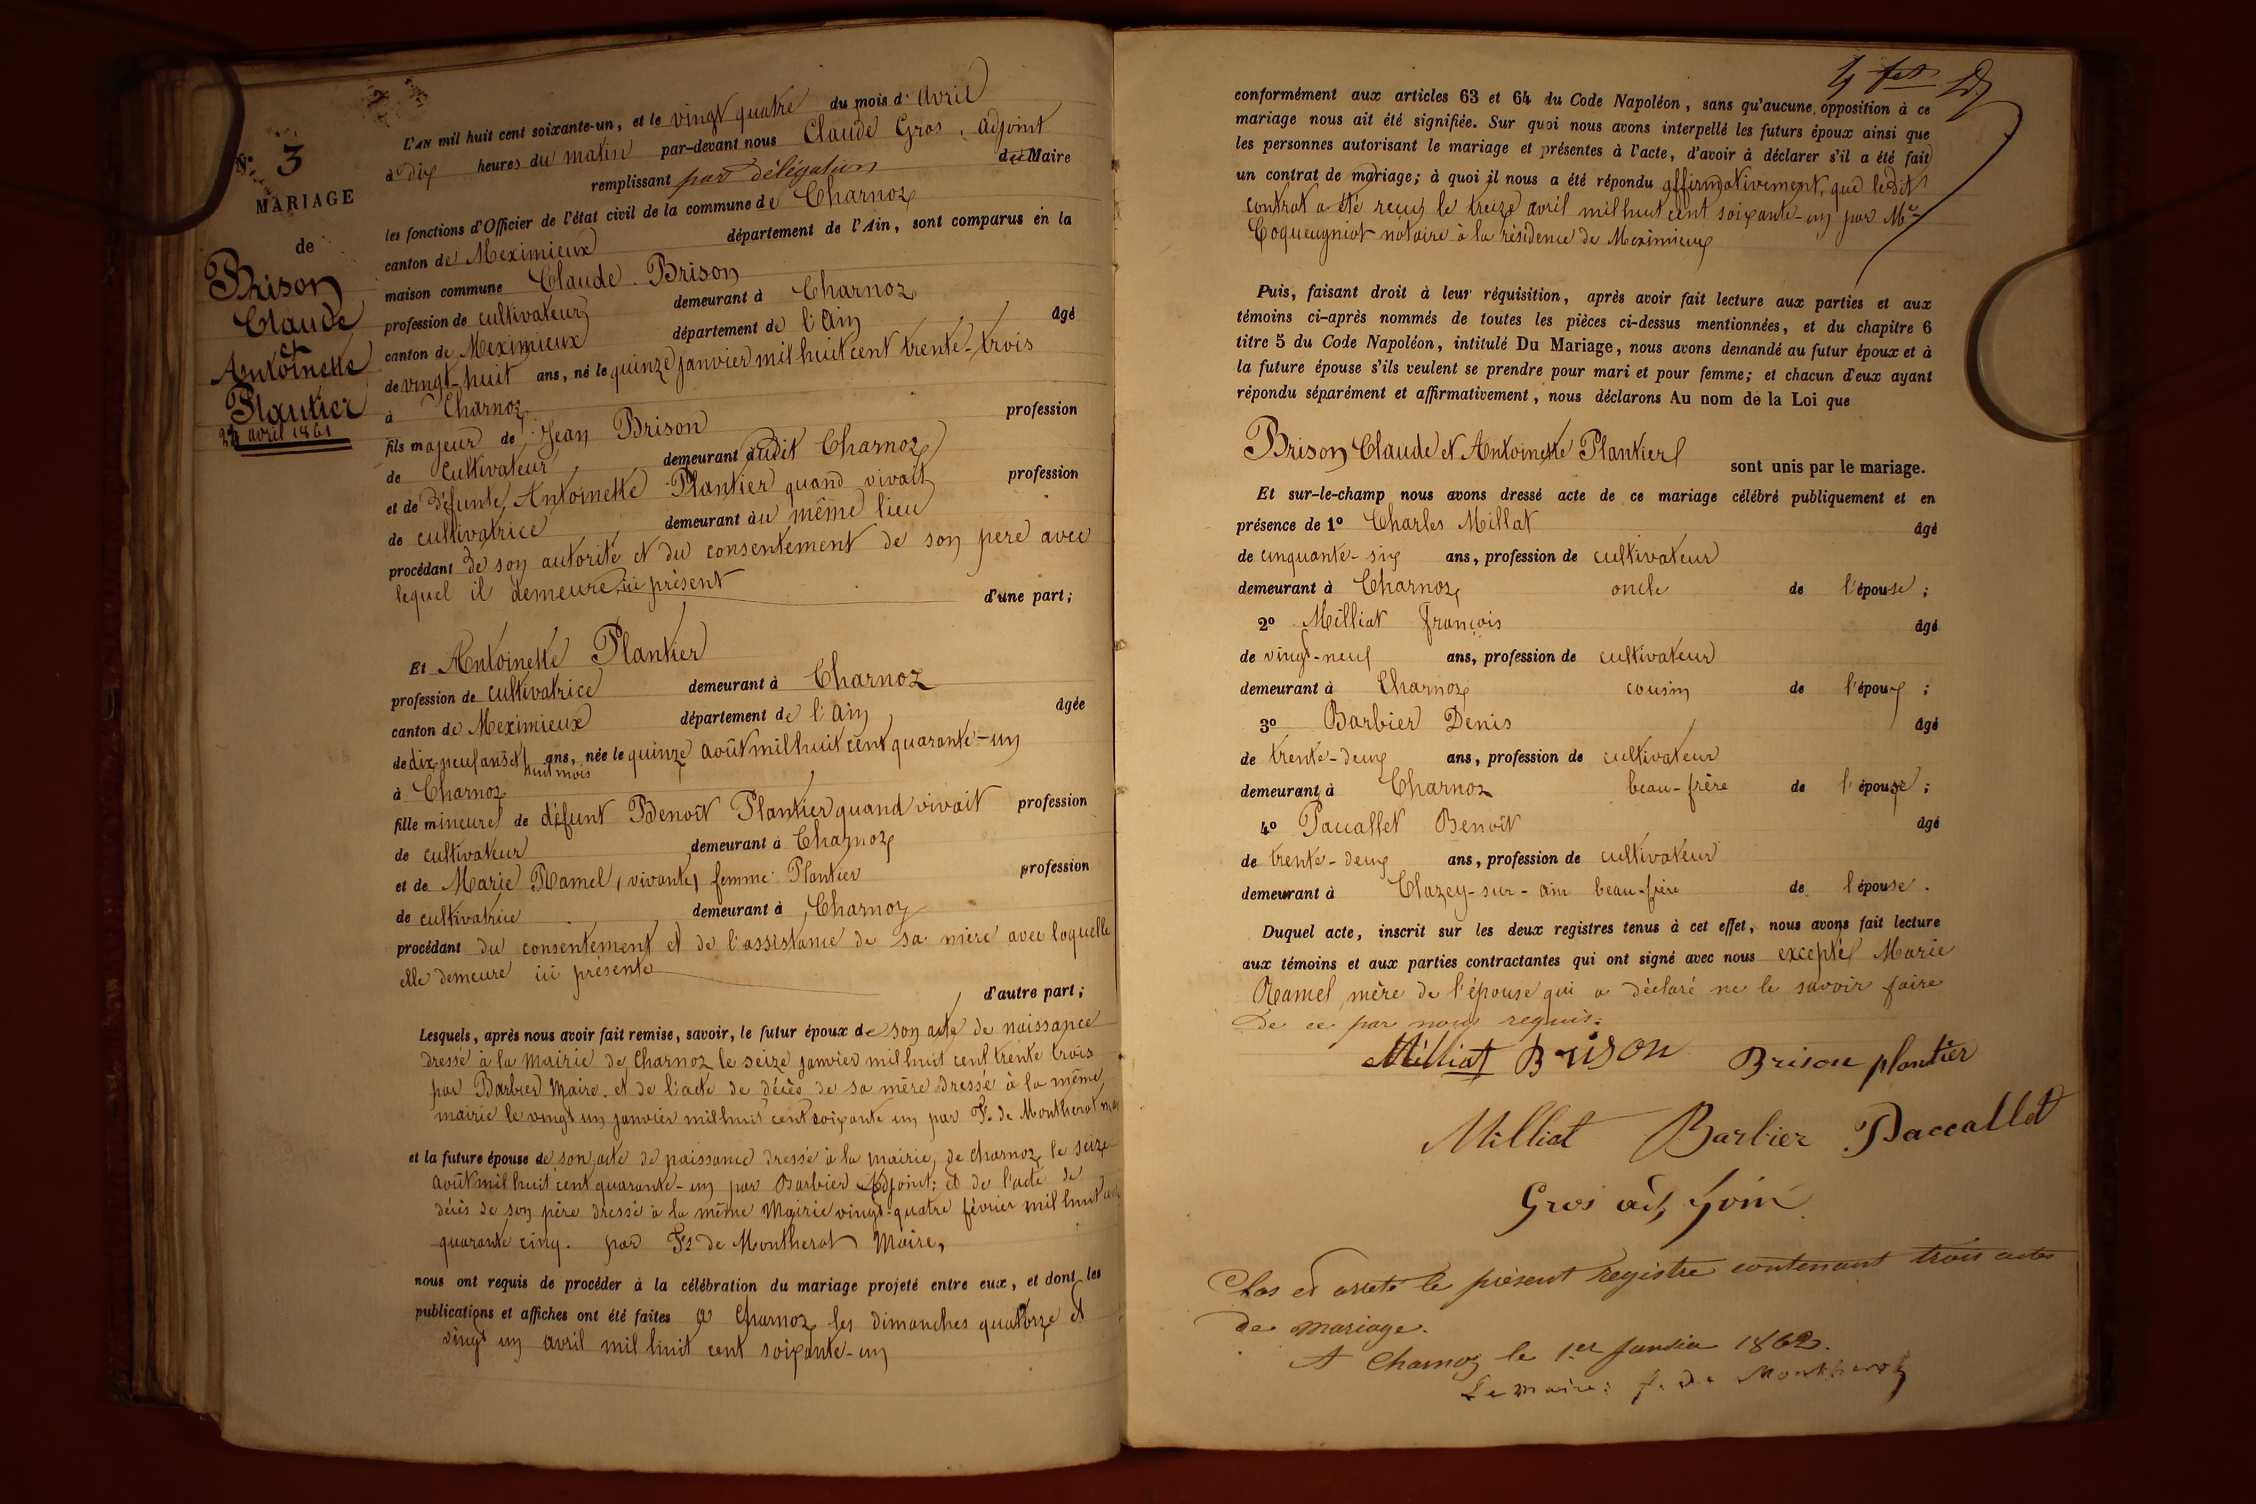 N° 3
MARIAGE
de
Brison
Claude
et
Antoinette
Plantier
24 avril 1861
L'AN mil huit cent soixante-un, et le vingt quatre du mois d'avril
à dix heures du matin par-devant nous Claude Gros, adjoint
remplissant par délégation du Maire
les fonctions d'Officier de l'état civil de la commune de Charnoz
canton de Meximieux département de l'Ain, sont comparus en la
maison commune Claude Brison
profession de cultivateur demeurant à Charnoz
canton de Meximieux département de l'Ain âgé
de vingt-huit ans, né le quinze janvier mil huit cent trente-trois
à Charnoz
fils majeur de Jean Brison profession
de cultivateur demeurant audit Charnoz
et de défunte Antoinette Plantier quand vivait profession
de cultivatrice demeurant au même lieu
procédant de son autorité et du consentement de son père avec
lequel il demeure, ici présent d'une part;
Et Antoinette Plantier
profession de cultivatrice demeurant à Charnoz
canton de Meximieux département de l'Ain âgée
de dix-neuf ans et huit mois ans, née le quinze août mil huit cent quarante-un
à Charnoz
fille mineure de défunt Benoît Plantier quand vivait profession
de cultivateur demeurant à Charnoz
et de Marie Ramel, vivante, femme Plantier profession
de cultivatrice demeurant à Charnoz
procédant du consentement et de l'assistance de sa mère avec laquelle
elle demeure ici présente
d'autre part;
Lesquels, après nous avoir fait remise, savoir, le futur époux de son acte de naissance
dressé à la mairie de Charnoz le seize janvier mil huit cent trente trois
par Barbier Maire. et de l'acte de décès de sa mère dressé à la même
mairie le vingt un janvier mil huit cent soixante un par F. de Montherot
et la future épouse de son acte de naissance dressé à la mairie de Charnoz le seize
août mil huit cent quarante-un par Barbier Adjoint; et de l'acte de
décès de son père dressé à la même Mairie vingt-quatre février mil huit cent
quarante cinq. par Fs de Montherot Maire,
nous ont requis de procéder à la célébration du mariage projeté entre eux, et dont les
publications et affiches ont été faites à Charnoz les dimanches quatorze et
vingt un avril mil huit cent soixante-un
conformément aux articles 63 et 64 du Code Napoléon, sans qu'aucune opposition à ce
mariage nous ait été signifiée. Sur quoi nous avons interpellé les futurs époux ainsi que
les personnes autorisant le mariage et présentes à l'acte, d'avoir à déclarer s'il a été fait
un contrat de mariage; à quoi il nous a été répondu affirmativement, que ledit
contrat a été reçu le treize avril mil huit cent soixante-un par Me
Coqueugniot notaire à la résidence de Meximieux
Puis, faisant droit à leur réquisition, après avoir fait lecture aux parties et aux
témoins ci-après nommés de toutes les pièces ci-dessus mentionnées, et du chapitre 6
titre 5 du Code Napoléon, intitulé Du Mariage, nous avons demandé au futur époux et à
la future épouse s'ils veulent se prendre pour mari et pour femme; et chacun d'eux ayant
répondu séparément et affirmativement, nous déclarons Au nom de la Loi que
Brison Claude et Antoinette Plantier
sont unis par le mariage.
Et sur-le-champ nous avons dressé acte de ce mariage célébré publiquement et en
présence de 1° Charles Millat âgé
de cinquante-six ans, profession de cultivateur
demeurant à Charnoz oncle de l'épouse;
2° Milliat François âgé
de vingt-neuf ans, profession de cultivateur
demeurant à Charnoz cousin de l'époux;
3° Barbier Denis âgé
de trente-deux ans, profession de cultivateur
demeurant à Charnoz beau-frère de l'épouse;
4° Paccallet Benoît âgé
de trente-deux ans, profession de cultivateur
demeurant à Chazey-sur-ain beau-frère de l'épouse.
Duquel acte, inscrit sur les deux registres tenus à cet effet, nous avons fait lecture
aux témoins et aux parties contractantes qui ont signé avec nous excepté Marie
Ramel mère de l'épouse qui a déclaré ne le savoir faire
de ce par nous requis.
Milliat Brison Brison plantier
Milliat Barbier Paccallet
Gros adjoint
Clos et arrêté le présent registre contenant trois actes
de mariage.
A Charnoz le 1er Janvier 1862.
Le maire: f. de Montherot